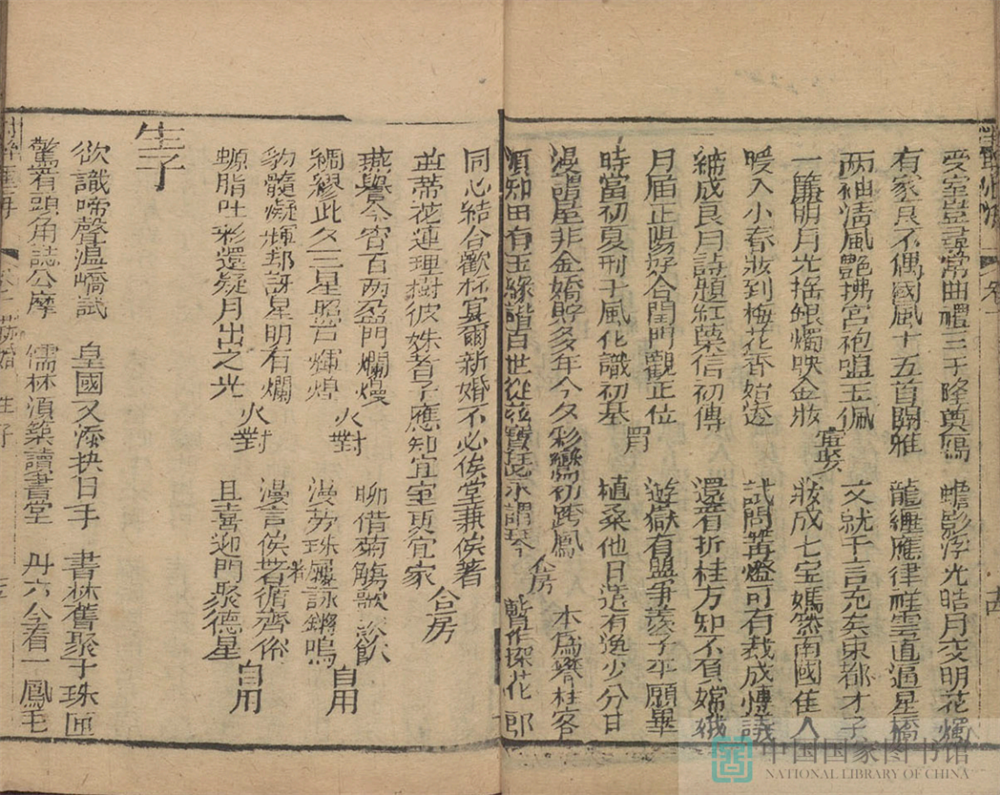 受室豈尋常曲禮三千隆奠鴈　蟾影浮光皓月交明花燭
有家良不偶國風十五首關雎　龍纏應律祥雲直逼星橋
兩袖清風艷拂宮袍嗌玉佩　文就千言充矣東都才子
一簾明月光搖銀燭映金妝　宦娶　妝成七宝嫣然南國佳人
暖入小春妝到梅花香始透　試問篝燈可有裁成博議
締成良月詩題紅葉信初傳　還看折桂方知不負嫦娥
月届正陽好合閨門觀正位　遊嶽有盟爭羨子平願畢
時當初夏刑于風化識初基　植桑他日還有逸少分甘
漫謂屋非金嬌貯多年今夕彩鸞初跨鳳　合房　本為攀桂客
須知田有玉緣諧百世從茲寶瑟永謂琴　暫作探花郎
同心結合歡杯宴爾新婚不必俟堂兼俟著
並蒂花連理樹彼姝者子應知宜室更宜家　合房
燕譽今宵百兩盈門爛熳　聊借菊觴歌飲
綢繆此夕三星照戶輝煌　火對　漫勞珠履詠鏘鳴　自用
豹髓凝輝却訝星明有爛　漫言俟著循齊俗
螈脂吐彩還疑月出之光　火對　且喜迎門聚德星　自用
生子
欲識啼聲溫嶠試　皇國又添抉日手　書林舊聚于珠匣
驚看頭角誌公摩　儒林湏築讀書堂　丹穴今看一鳳毛
生子
中国国家图书馆
NATIONAL LIBRARY OF CHINA